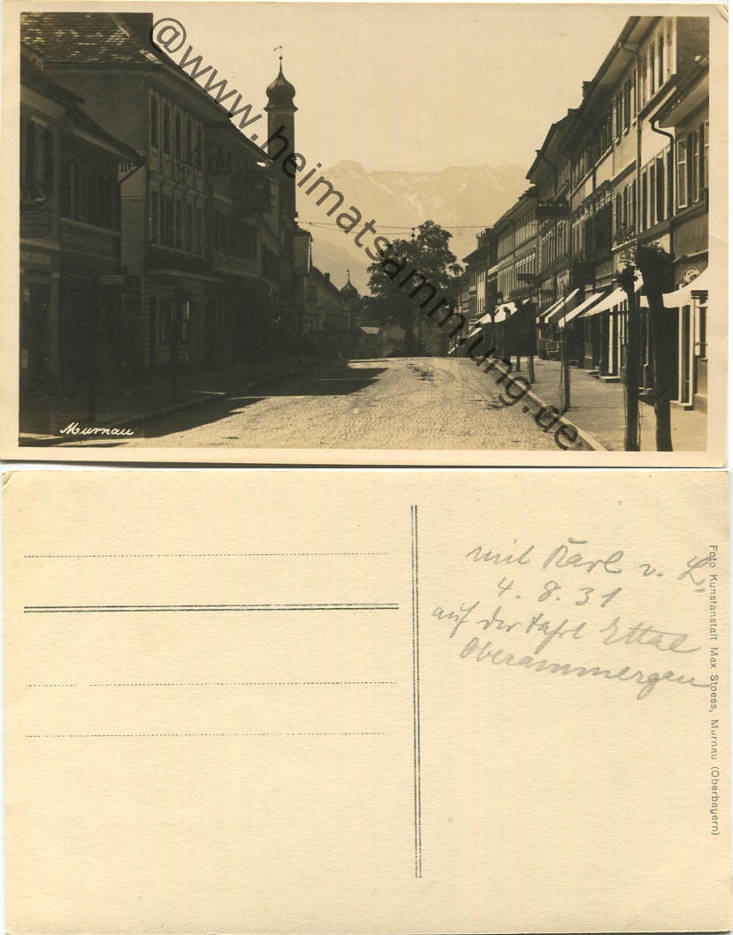 @www.heimatsammlung.de
Murnau
mit Karl v. L.
4. 8. 31
auf der Fahrt Ettal
Oberammergau
Foto Kunstanstalt Max Stoess, Murnau (Oberbayern)